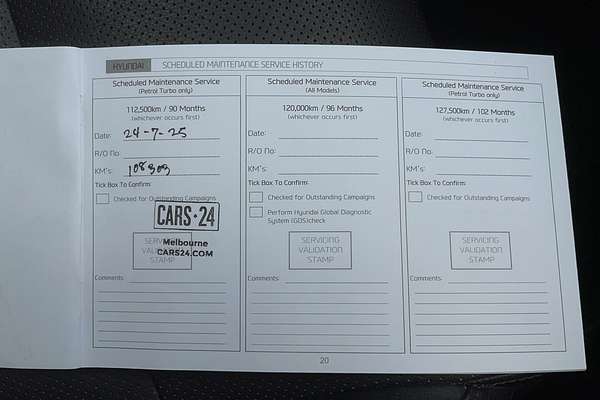 HYUNDAI SCHEDULED MAINTENANCE SERVICE HISTORY
Scheduled Maintenance Service
(Petrol Turbo only)
112,500km / 90 Months
(whichever occurs first)
Date: 24-7-25
R/O No:
KM's: 108303
Tick Box To Confirm:
Checked for Outstanding Campaigns
CARS24
SERVICING
VALIDATION
STAMP
Melbourne
CARS24.COM
Comments:
Scheduled Maintenance Service
(All Models)
120,000km / 96 Months
(whichever occurs first)
Date:
R/O No:
KM's:
Tick Box To Confirm:
Checked for Outstanding Campaigns
Perform Hyundai Global Diagnostic
System (GDS)check
SERVICING
VALIDATION
STAMP
Comments:
Scheduled Maintenance Service
(Petrol Turbo only)
127,500km / 102 Months
(whichever occurs first)
Date:
R/O No:
KM's:
Tick Box To Confirm:
Checked for Outstanding Campaigns
SERVICING
VALIDATION
STAMP
Comments:
20